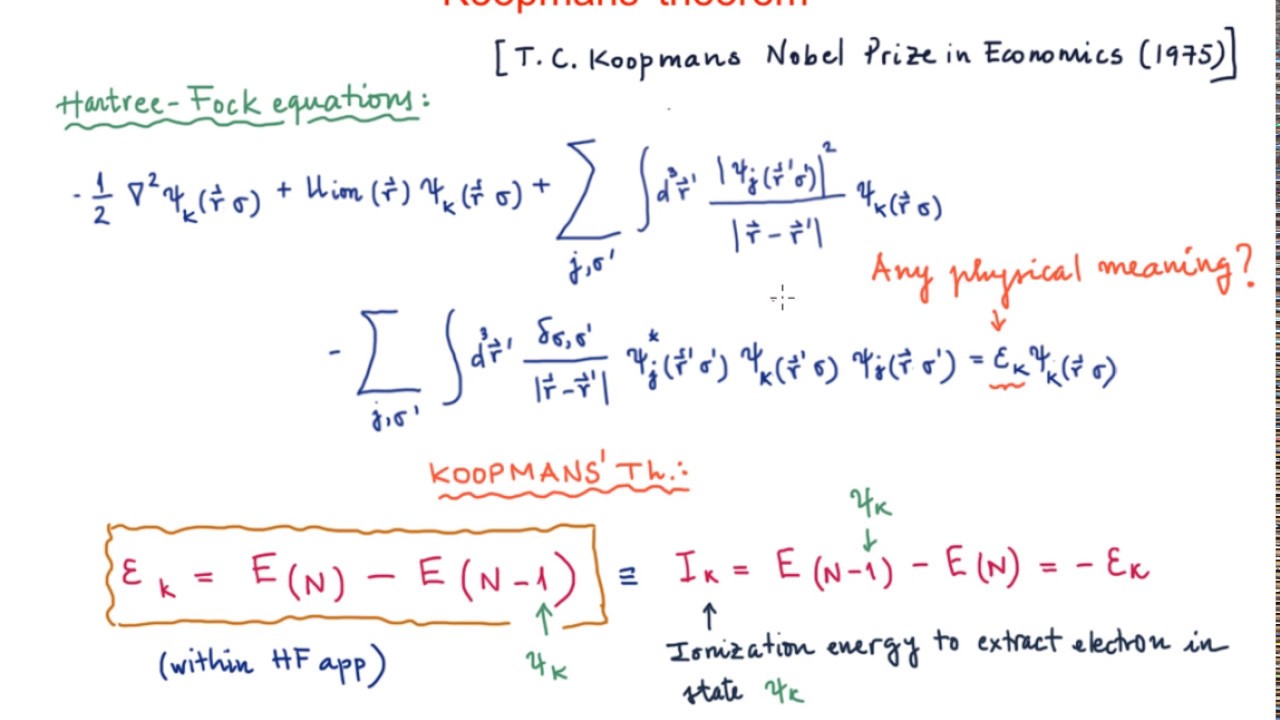 Koopmans' theorem
[T. C. Koopmans Nobel Prize in Economics (1975)]
Hartree-Fock equations:
- 1/2 ∇² ψ_k(r⃗ σ) + U_ion(r⃗) ψ_k(r⃗ σ) + ∑_{j,σ'} ∫ d³r⃗' |ψ_j(r⃗'σ')|² / |r⃗ - r⃗'| ψ_k(r⃗ σ)
Any physical meaning?
↓
- ∑_{j,σ'} ∫ d³r⃗' δ_{σ,σ'} / |r⃗ - r⃗'| ψ_j*(r⃗'σ') ψ_k(r⃗'σ) ψ_j(r⃗ σ') = ε_k ψ_k(r⃗ σ)
KOOPMANS' Th.:
ψ_k
↓
ε_k = E(N) - E(N-1) ≡ I_k = E(N-1) - E(N) = - ε_k
↑ ↑
(within HF app) ψ_k Ionization energy to extract electron in
state ψ_k